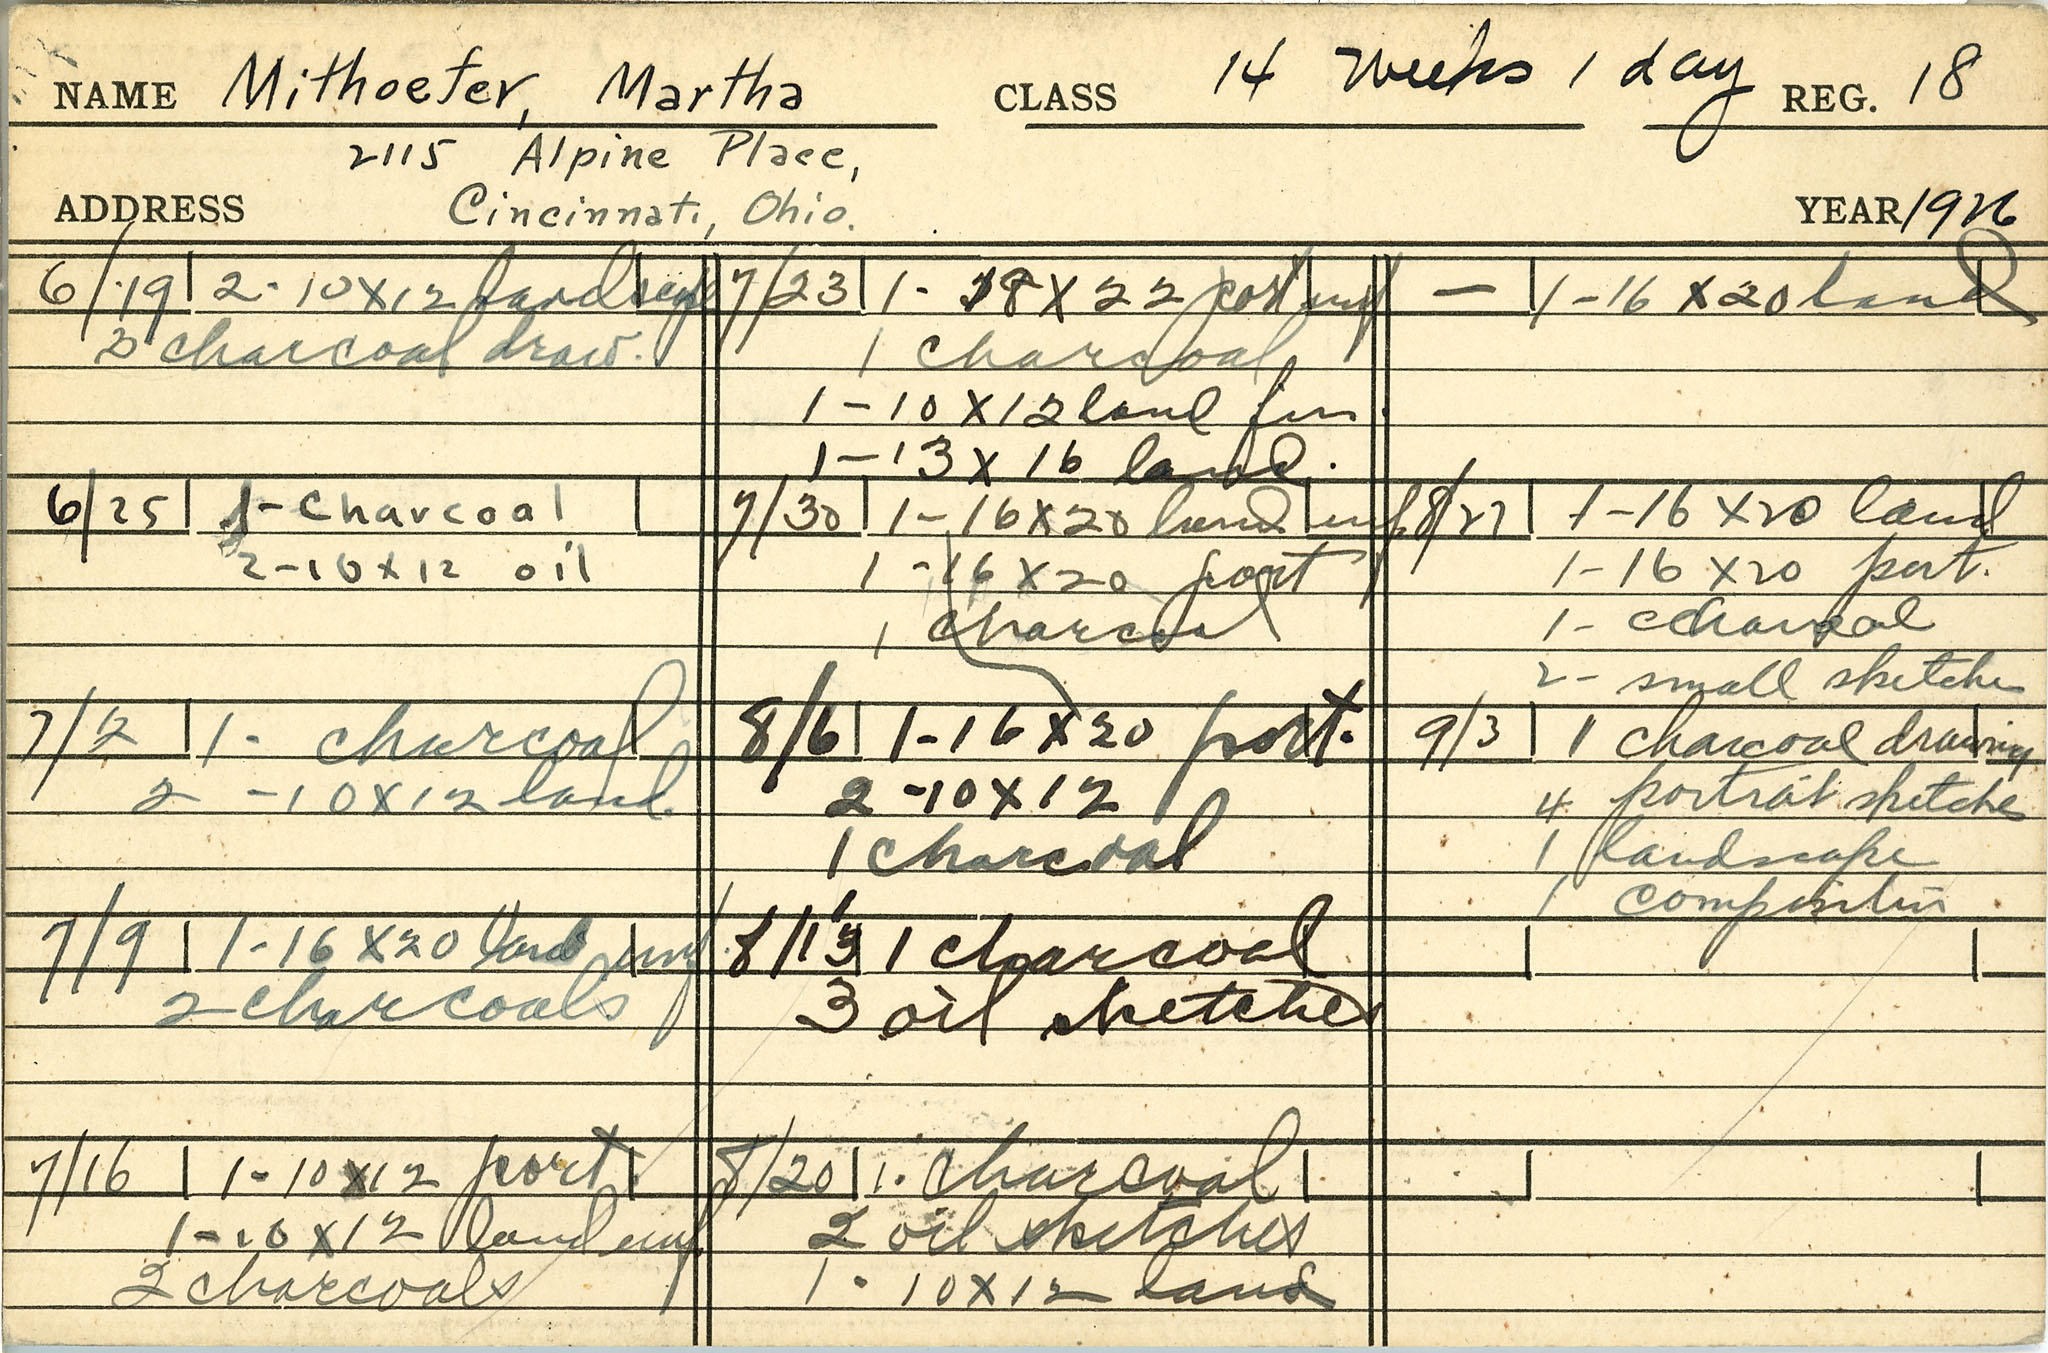 NAME Mithoefer, Martha CLASS 14 weeks 1 day REG. 18
2115 Alpine Place,
ADDRESS Cincinnati, Ohio. YEAR 1926
6/19 2-10X12 landscape
2 charcoal draw.
6/25 1-Charcoal
2-10x12 oil
7/2 1- charcoal
2 -10X12 land.
7/9 1-16X20 land unf.
2 charcoals
7/16 1-10X12 port.
1-10X12 land unf
2 charcoals
7/23 1-18X22 port unf
1 charcoal
1-10X12 land fin.
1-13X16 land.
7/30 1-16X20 land unf
1-16X20 port
1 charcoal
8/6 1-16X20 port.
2-10X12
1 charcoal
8/13 1 charcoal
3 oil sketches
8/20 1. charcoal
2 oil sketches
1. 10X12 land
— 1-16X20 land
8/27 1-16X20 land
1-16X20 port.
1- charcoal
2- small sketches
9/3 1 charcoal drawing
4 portrait sketches
1 landscape
1 composition